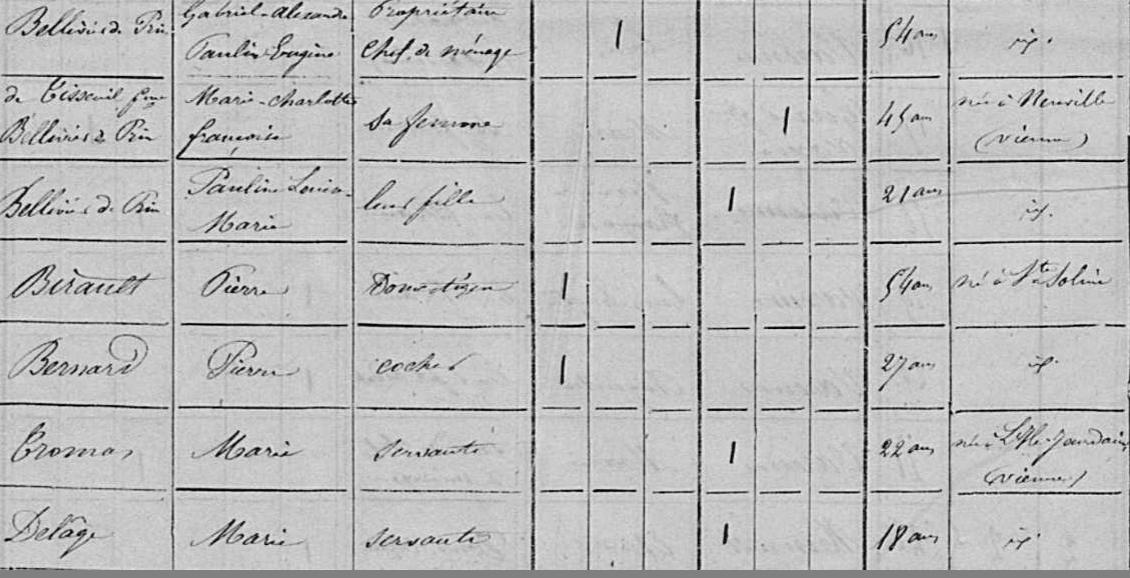 Bellivier de Prin
Gabriel-Alexandre
Paulin Eugène
Propriétaire
Chef de ménage
1
54 ans
id.
de Tisseuil fme
Bellivier de Prin
Marie-Charlotte
françoise
Sa femme
1
45 ans
née à Neuville
(vienne)
Bellivier de Prin
Pauline Louise
Marie
leur fille
1
21 ans
id.
Birault
Pierre
Domestique
1
54 ans
né à Ste Soline
Bernard
Pierre
cocher
1
27 ans
id.
Cromas
Marie
servante
1
22 ans
née à L'Isle-Jourdain
(vienne)
Delage
Marie
servante
1
18 ans
id.